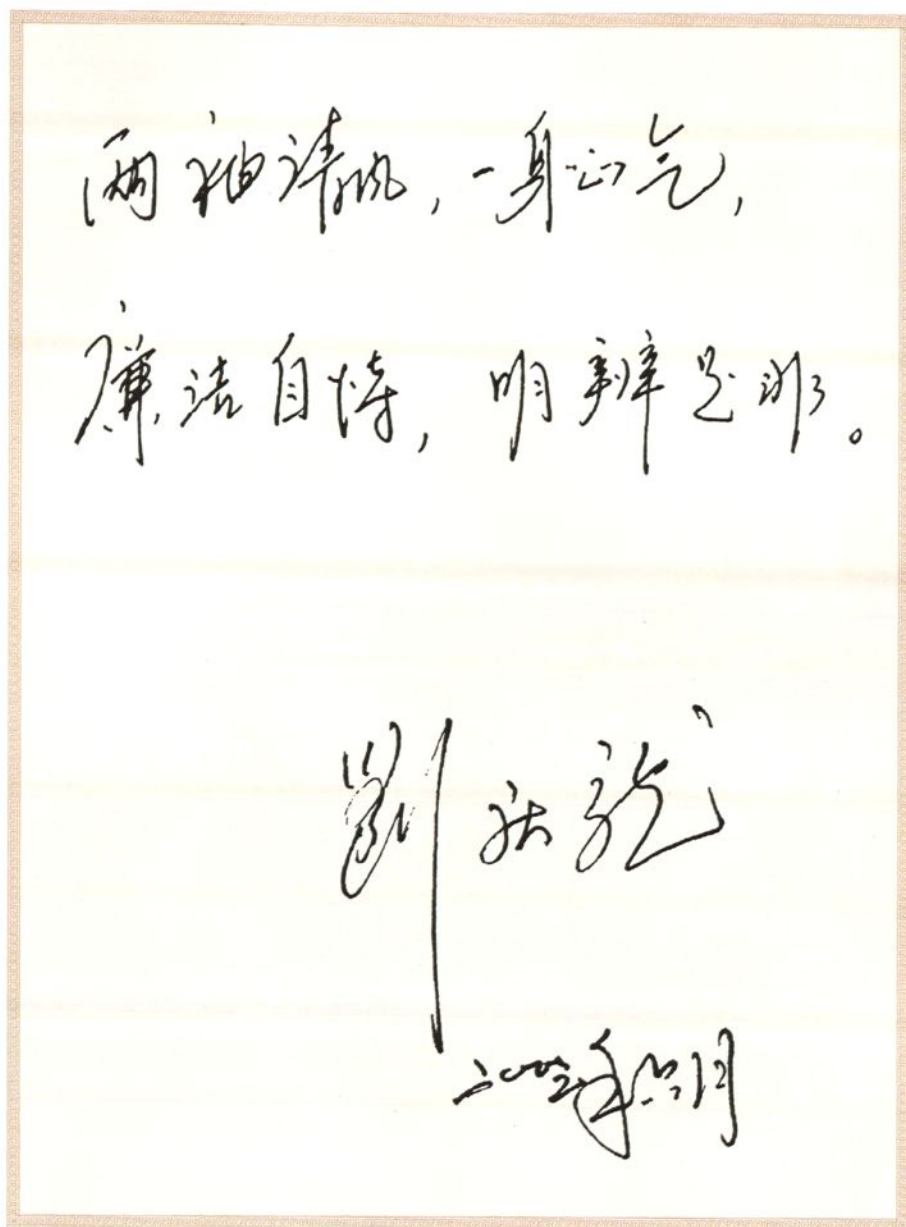 两袖清风，一身正气，
廉洁自持，明辨是非。
劉
年六月